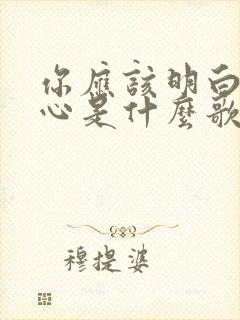 你應該明白
心是什麼歌
穆提婆